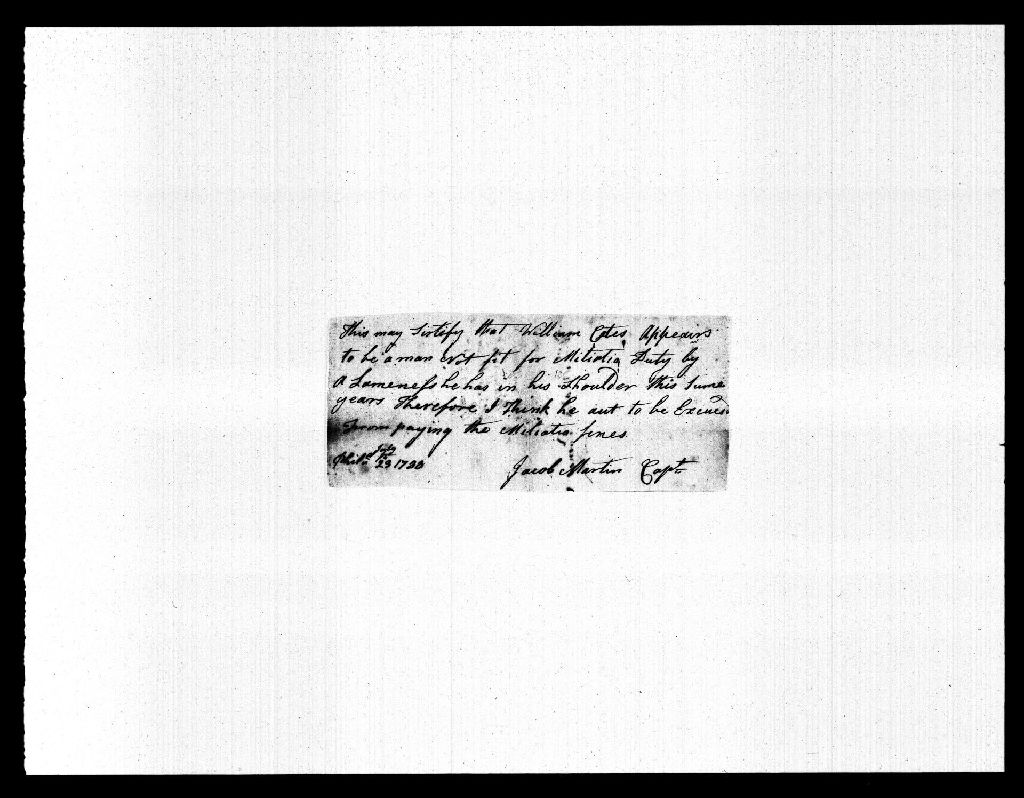 This may Sertify that William Cotes Appears
to be a man Not fit for Militia Duty by
A Lameness he has in his Shoulder this Sume
years Therefore I Think he aut to be Excues
From paying the Militia fines
Phila July 23 1788
Jacob Martin Capt